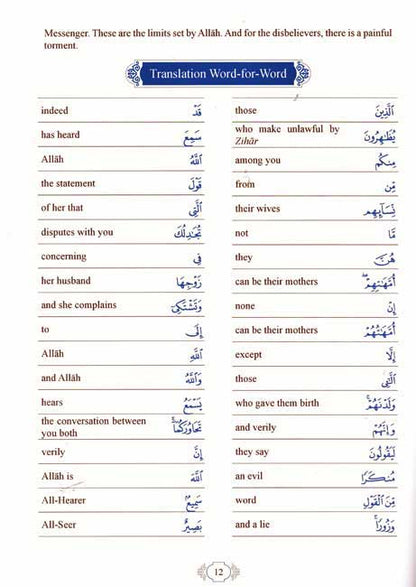 Messenger. These are the limits set by Allāh. And for the disbelievers, there is a painful
torment.
Translation Word-for-Word
indeed قَدْ
has heard سَمِعَ
Allāh ٱللَّهُ
the statement قَوْلَ
of her that ٱلَّتِى
disputes with you تُجَـٰدِلُكَ
concerning فِى
her husband زَوْجِهَا
and she complains وَتَشْتَكِىٓ
to إِلَى
Allāh ٱللَّهِ
and Allāh وَٱللَّهُ
hears يَسْمَعُ
the conversation between
you both تَحَاوُرَكُمَآ
verily إِنَّ
Allāh is ٱللَّهَ
All-Hearer سَمِيعٌۢ
All-Seer بَصِيرٌ
those ٱلَّذِينَ
who make unlawful by
Zihār يُظَـٰهِرُونَ
among you مِنكُم
from مِّن
their wives نِّسَآئِهِم
not مَّا
they هُنَّ
can be their mothers أُمَّهَـٰتِهِمْ
none إِنْ
can be their mothers أُمَّهَـٰتُهُمْ
except إِلَّا
those ٱلَّـٰٓـِٔى
who gave them birth وَلَدْنَهُمْ
and verily وَإِنَّهُمْ
they say لَيَقُولُونَ
an evil مُنكَرًا
word مِّنَ ٱلْقَوْلِ
and a lie وَزُورًا
12